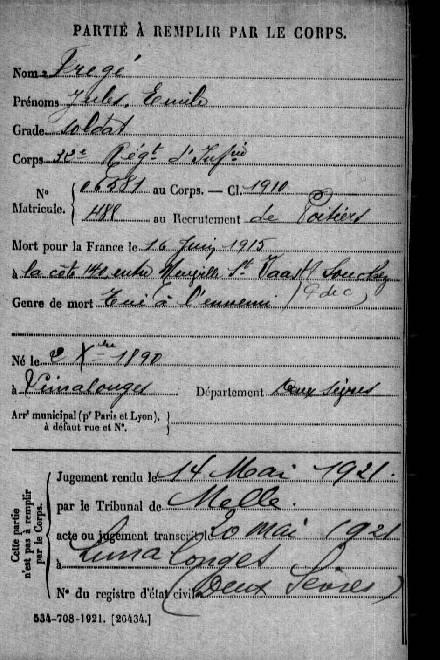 PARTIE À REMPLIR PAR LE CORPS.
Nom Fregé
Prénoms Jules, Emile
Grade soldat
Corps 32e Régt d'Infrie
N° Matricule. { 06581 au Corps. — Cl. 1910
488 au Recrutement de Poitiers
Mort pour la France le 16 Juin 1915
à la côte 140 entre Neuville St Vaast & Souchez
Genre de mort Tué à l'ennemi (P. de C)
Né le 2 Xbre 1890
à Limalonges Département Deux Sèvres
Arrt municipal (pr Paris et Lyon), à défaut rue et N°. }
Cette partie n'est pas à remplir par le Corps.
Jugement rendu le 14 Mai 1921.
par le Tribunal de Melle
acte ou jugement transcrit le 20 mai 1921
à Limalonges
(Deux Sèvres)
N° du registre d'état civil
534-708-1921. [26434.]